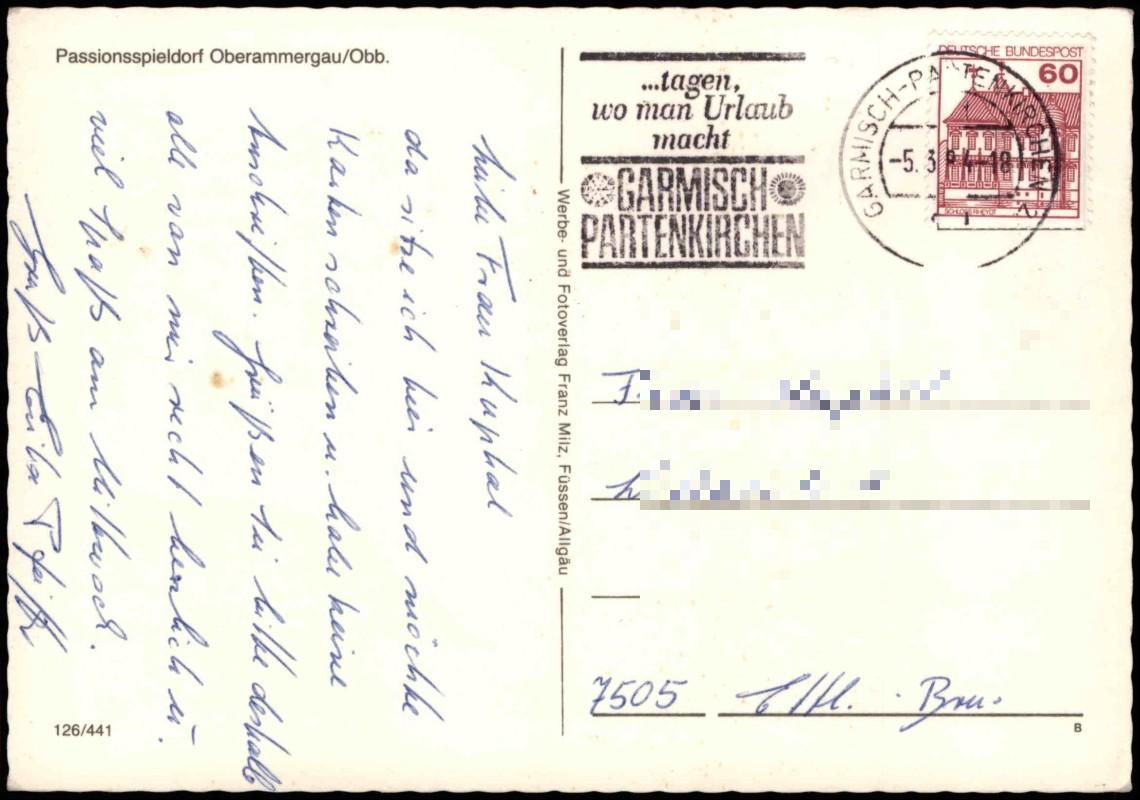 Passionsspieldorf Oberammergau/Obb.
Liebe Frau Kuphal
da sitze ich hier und möchte
Karten schreiben u. habe keine
Anschriften. Grüßen Sie bitte deshalb
alle von mir recht herzlich u.
viel Spaß am Mittwoch.
Gruß
126/441
Werbe- und Fotoverlag Franz Milz, Füssen/Allgäu
...tagen,
wo man Urlaub
macht
GARMISCH
PARTENKIRCHEN
GARMISCH-PARTENKIRCHEN 2
-5.3.84-18
DEUTSCHE BUNDESPOST
60
SCHLOSS RHEYDT
7505 Ettl.
B